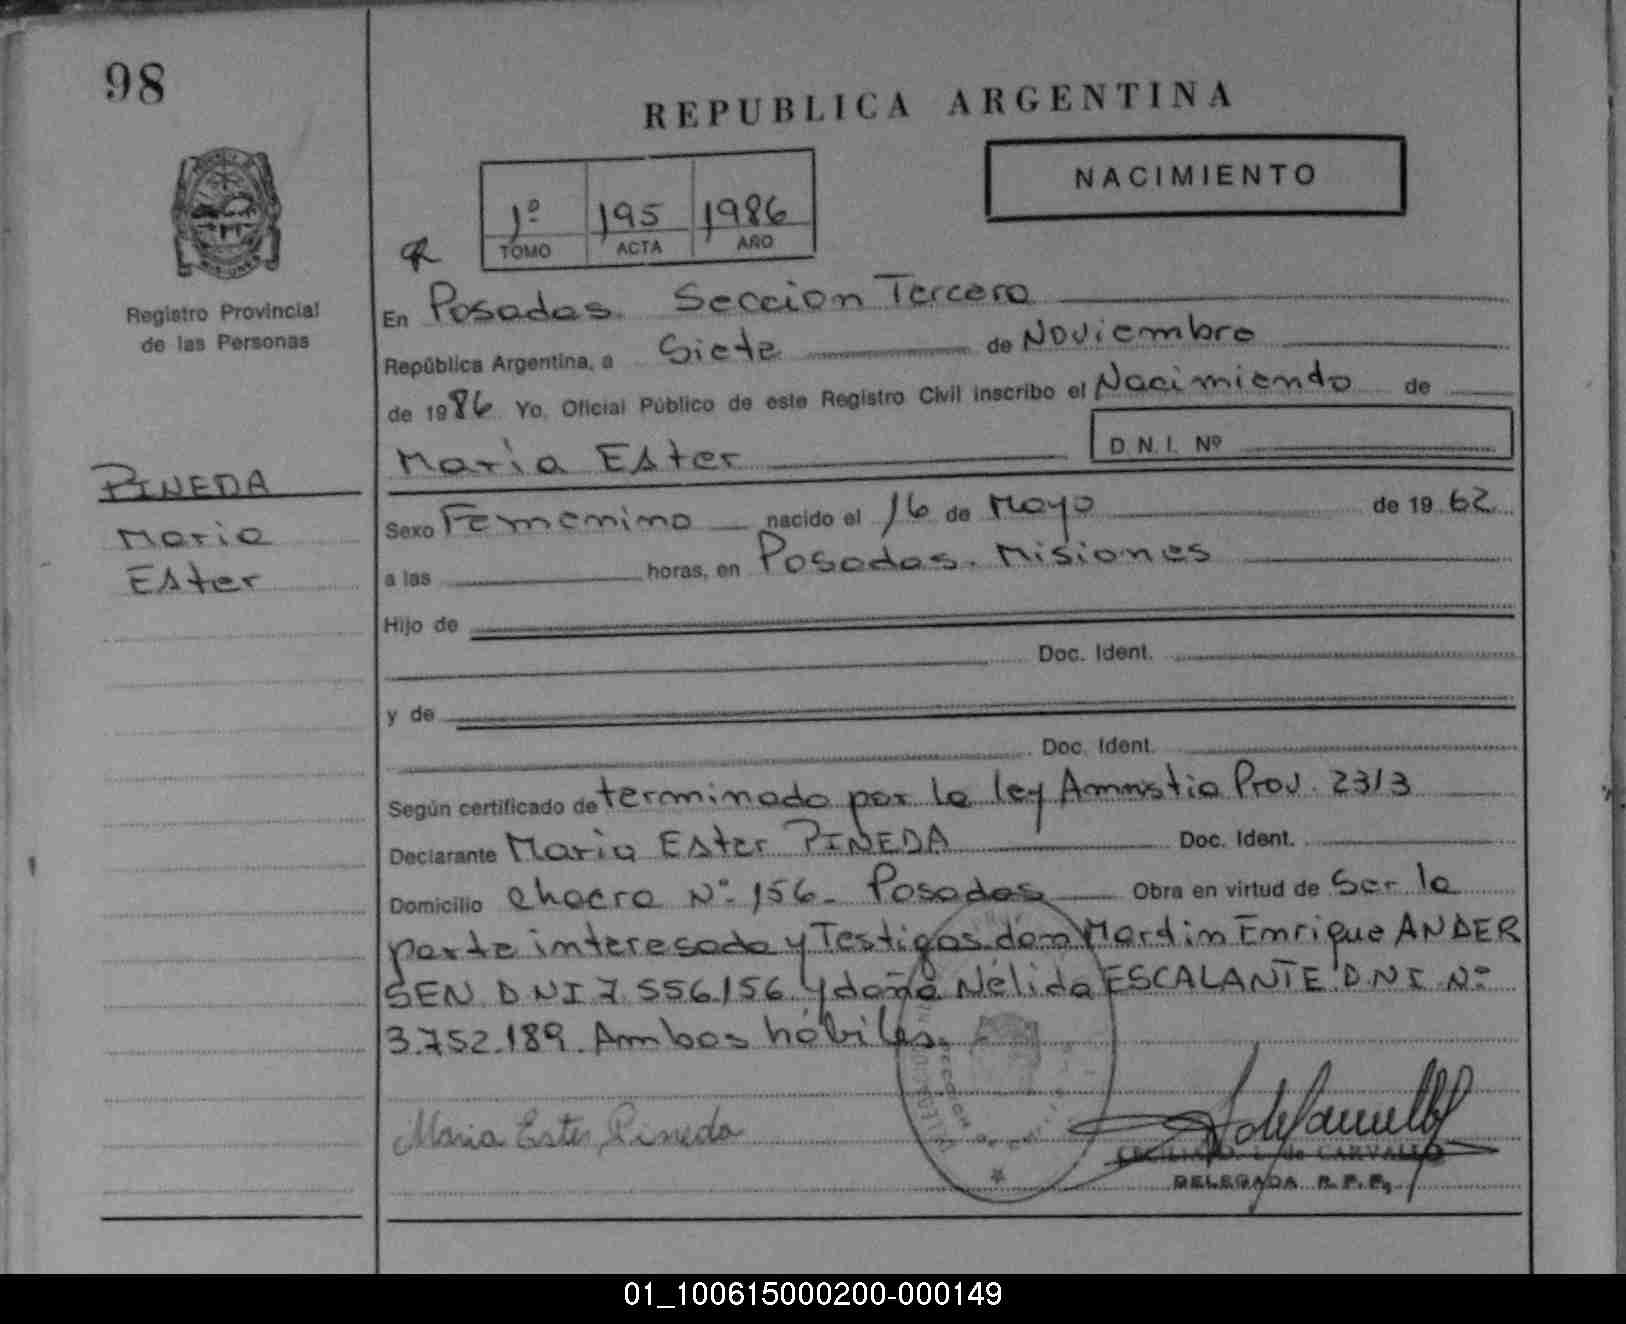 98
REPUBLICA ARGENTINA
NACIMIENTO
1º 195 1986
TOMO ACTA AÑO
Registro Provincial
de las Personas
En Posadas. Seccion Tercera
República Argentina, a Siete de Noviembre
de 1986 Yo, Oficial Público de este Registro Civil inscribo el Nacimiento de
Maria Ester D.N.I. Nº
PINEDA
Maria
Ester
Sexo Femenino nacido el 16 de Mayo de 1962
a las horas, en Posadas. Misiones
Hijo de
Doc. Ident.
y de
Doc. Ident.
Según certificado de terminado por la ley Amnistia Prov. 2313
Declarante Maria Ester PINEDA Doc. Ident.
Domicilio chacra Nº 156- Posadas Obra en virtud de Ser la
parte interesada y Testigos don Martin Enrique ANDER
SEN DNI 7.556.156 y doña Nélida ESCALANTE D.N.I. Nº
3.752.189. Ambos hábiles.
Maria Ester Pineda
de CARVALLO
DELEGADA R.P.P.
01_100615000200-000149